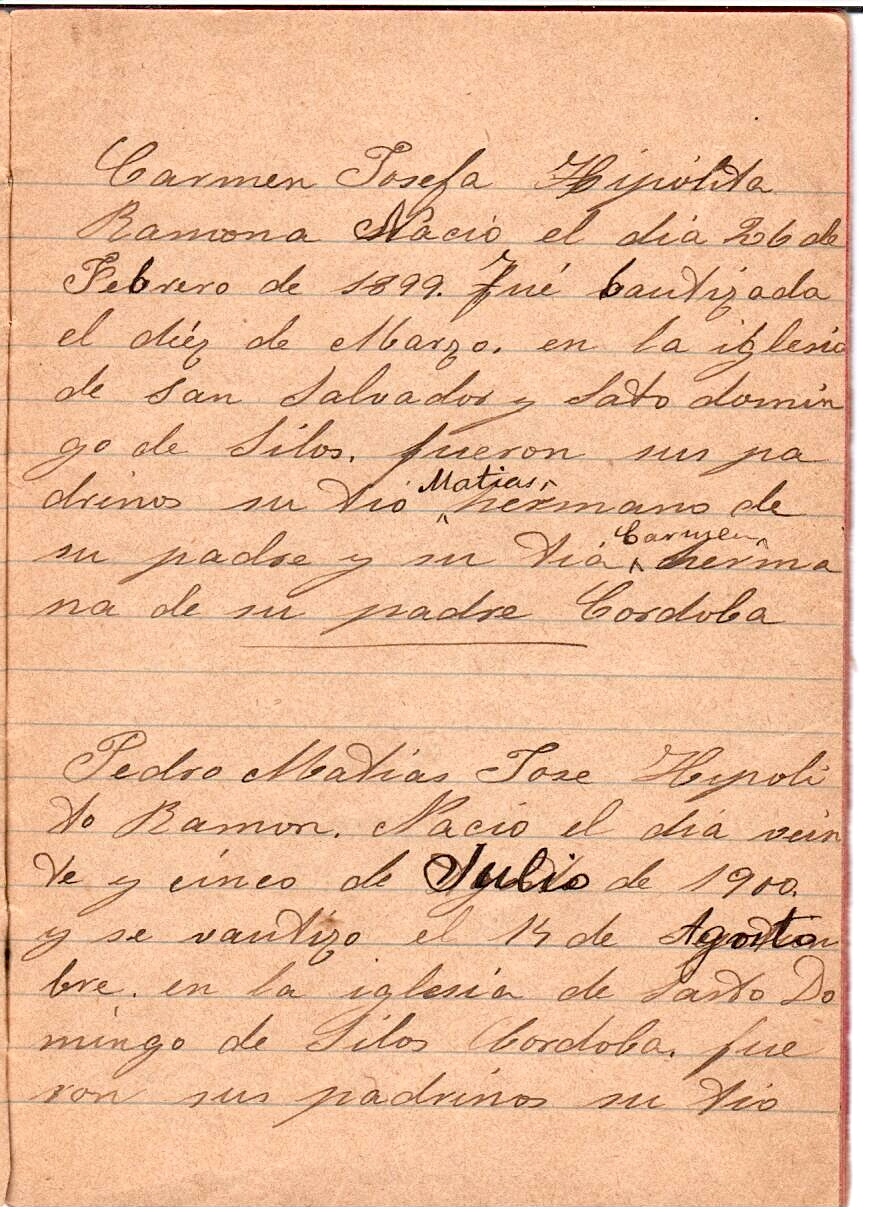 Carmen Josefa Hipólita
Ramona Nació el dia 26 de
Febrero de 1899. Fué bautizada
el diéz de Marzo, en la iglesia
de San Salvador y Sato domin
go de Silos, fueron sus pa
drinos su tió Matias hermano de
su padre y su tiá Carmen herma
na de su padre Cordoba
Pedro Matias Jose Hypoli
to Ramon. Nació el dia vein
te y cinco de Julio de 1900.
y se vautizo el 14 de Agosto
bre. en la iglesia de Santo Do
mingo de Silos Cordoba. fue
ron sus padrinos su tio